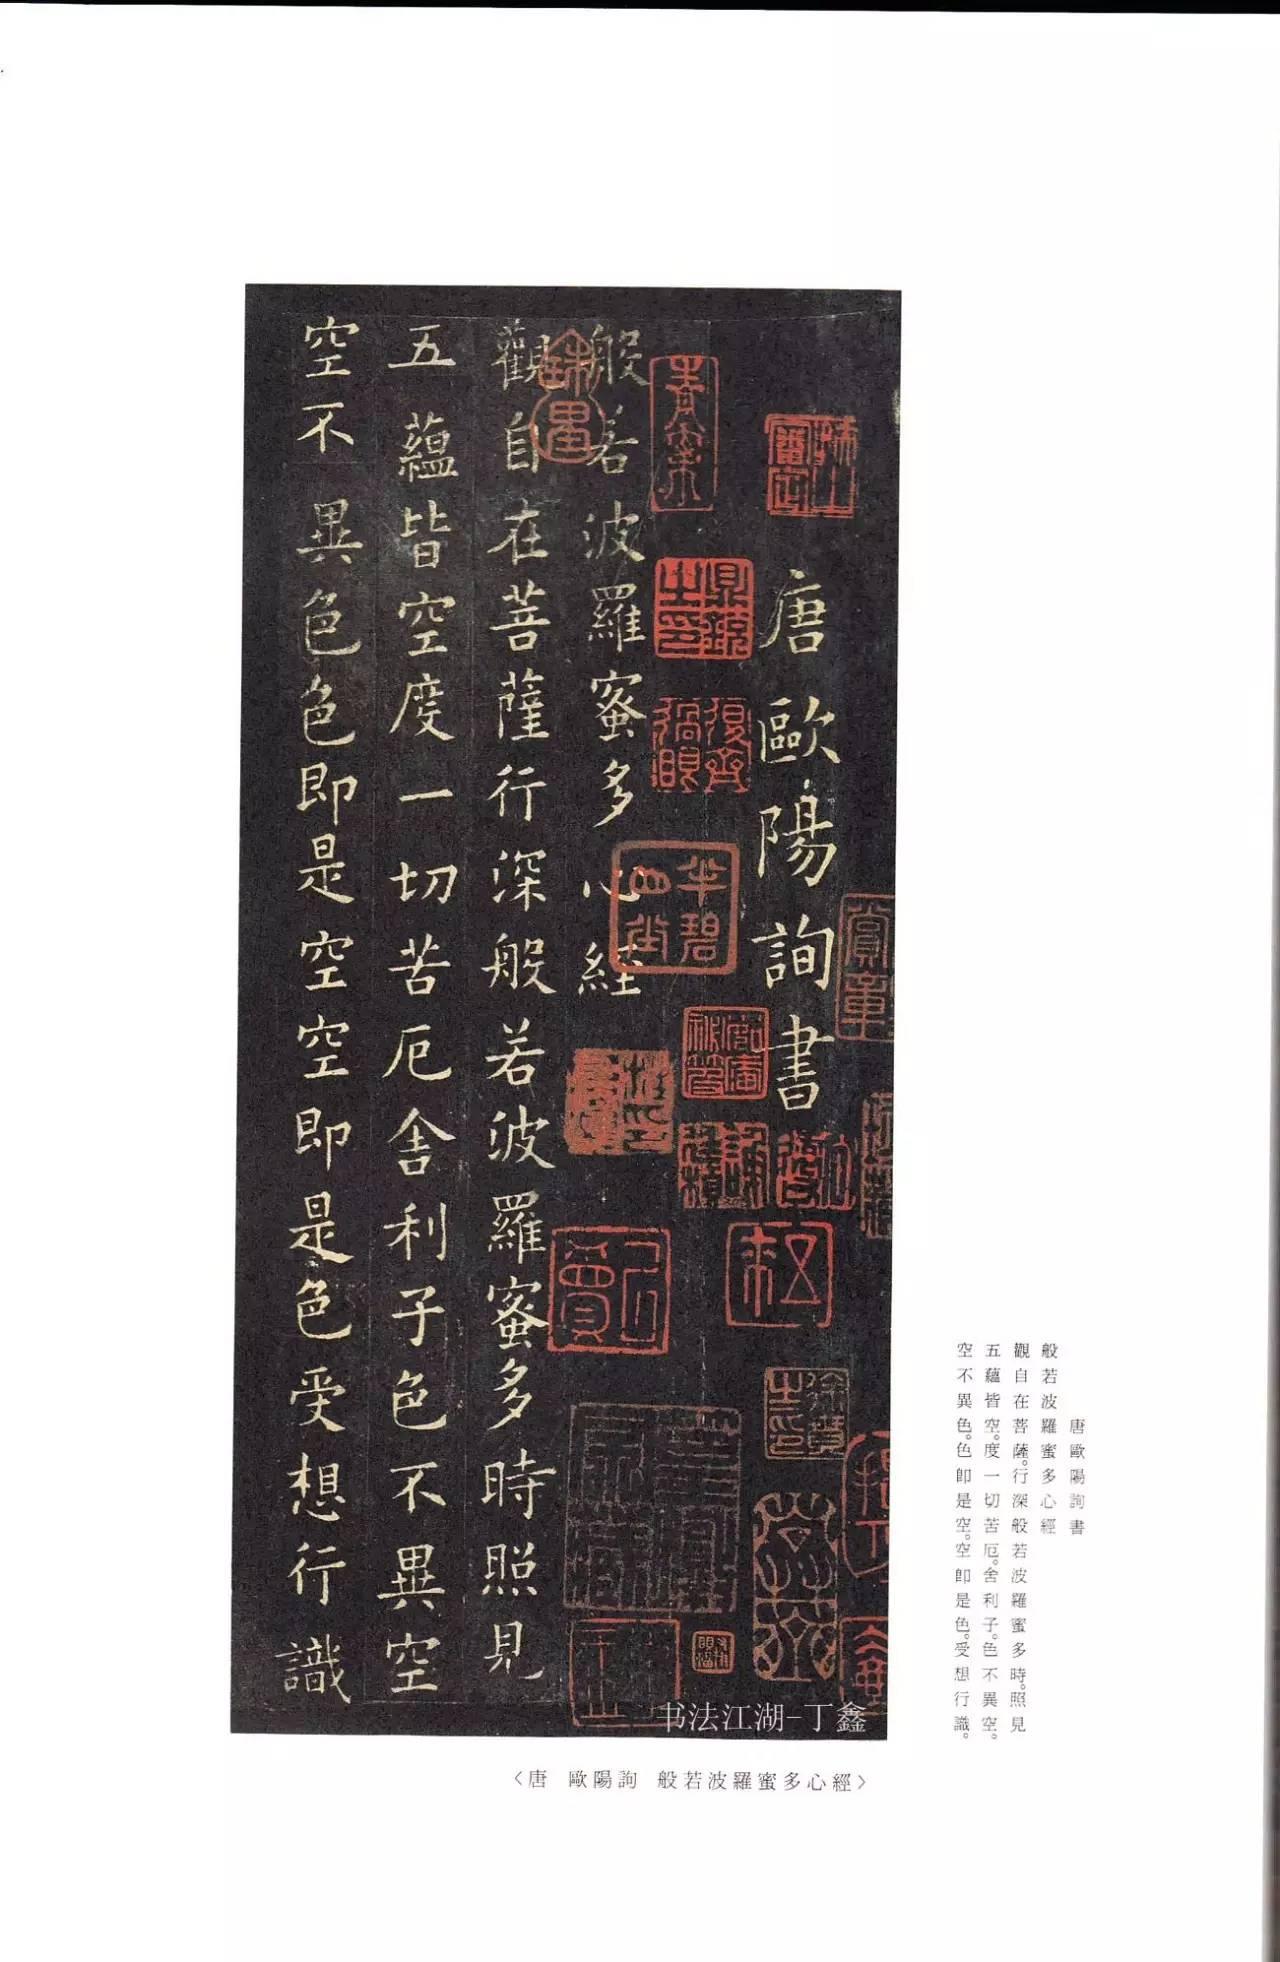 唐歐陽詢書
般若波羅蜜多心經
觀自在菩薩行深般若波羅蜜多時照見
五蘊皆空度一切苦厄舍利子色不異空
空不異色色即是空空即是色受想行識
书法江湖-丁鑫
〈唐 歐陽詢 般若波羅蜜多心經〉
唐歐陽詢書
般若波羅蜜多心經
觀自在菩薩。行深般若波羅蜜多時。照見
五蘊皆空。度一切苦厄。舍利子。色不異空。
空不異色。色即是空。空即是色。受想行識。